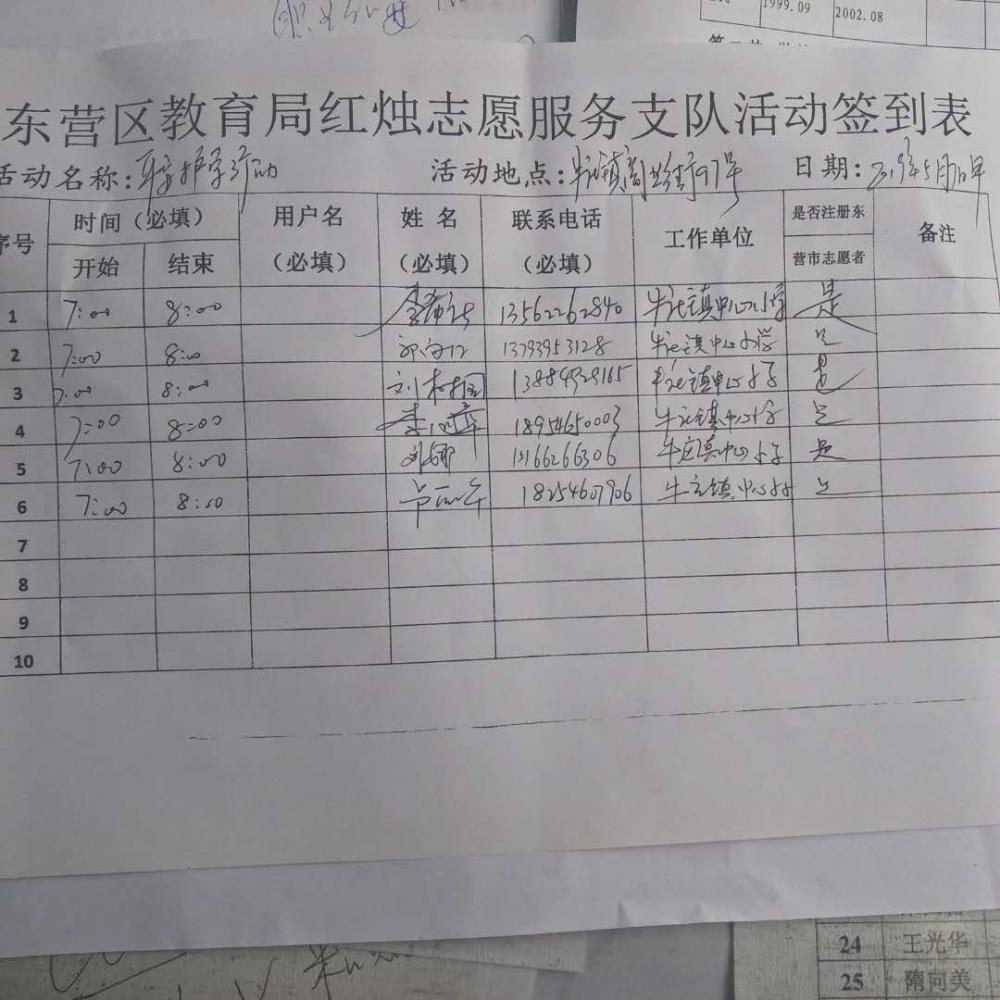 1999.09
2002.08
东营区教育局红烛志愿服务支队活动签到表
活动名称: 护学行动 活动地点: 牛庄镇商业街97号 日期:
序号 时间(必填) 用户名 姓名 联系电话 工作单位 是否注册东 备注
开始 结束 (必填) (必填) (必填) 营市志愿者
1 7:00 8:00 13562262840 牛庄镇中心小学 是
2 7:00 8:00 13793953128 牛庄镇中心小学 是
3 7:00 8:00 刘 13884929165 牛庄镇中心小学 是
4 7:00 8:00 李 18954650003 牛庄镇中心小学 是
5 7:00 8:00 刘娜 牛庄镇中心小学 是
6 7:00 8:00 18254607906 牛庄镇中心小学 是
7
8
9
10
24 王光华
25 隋向美